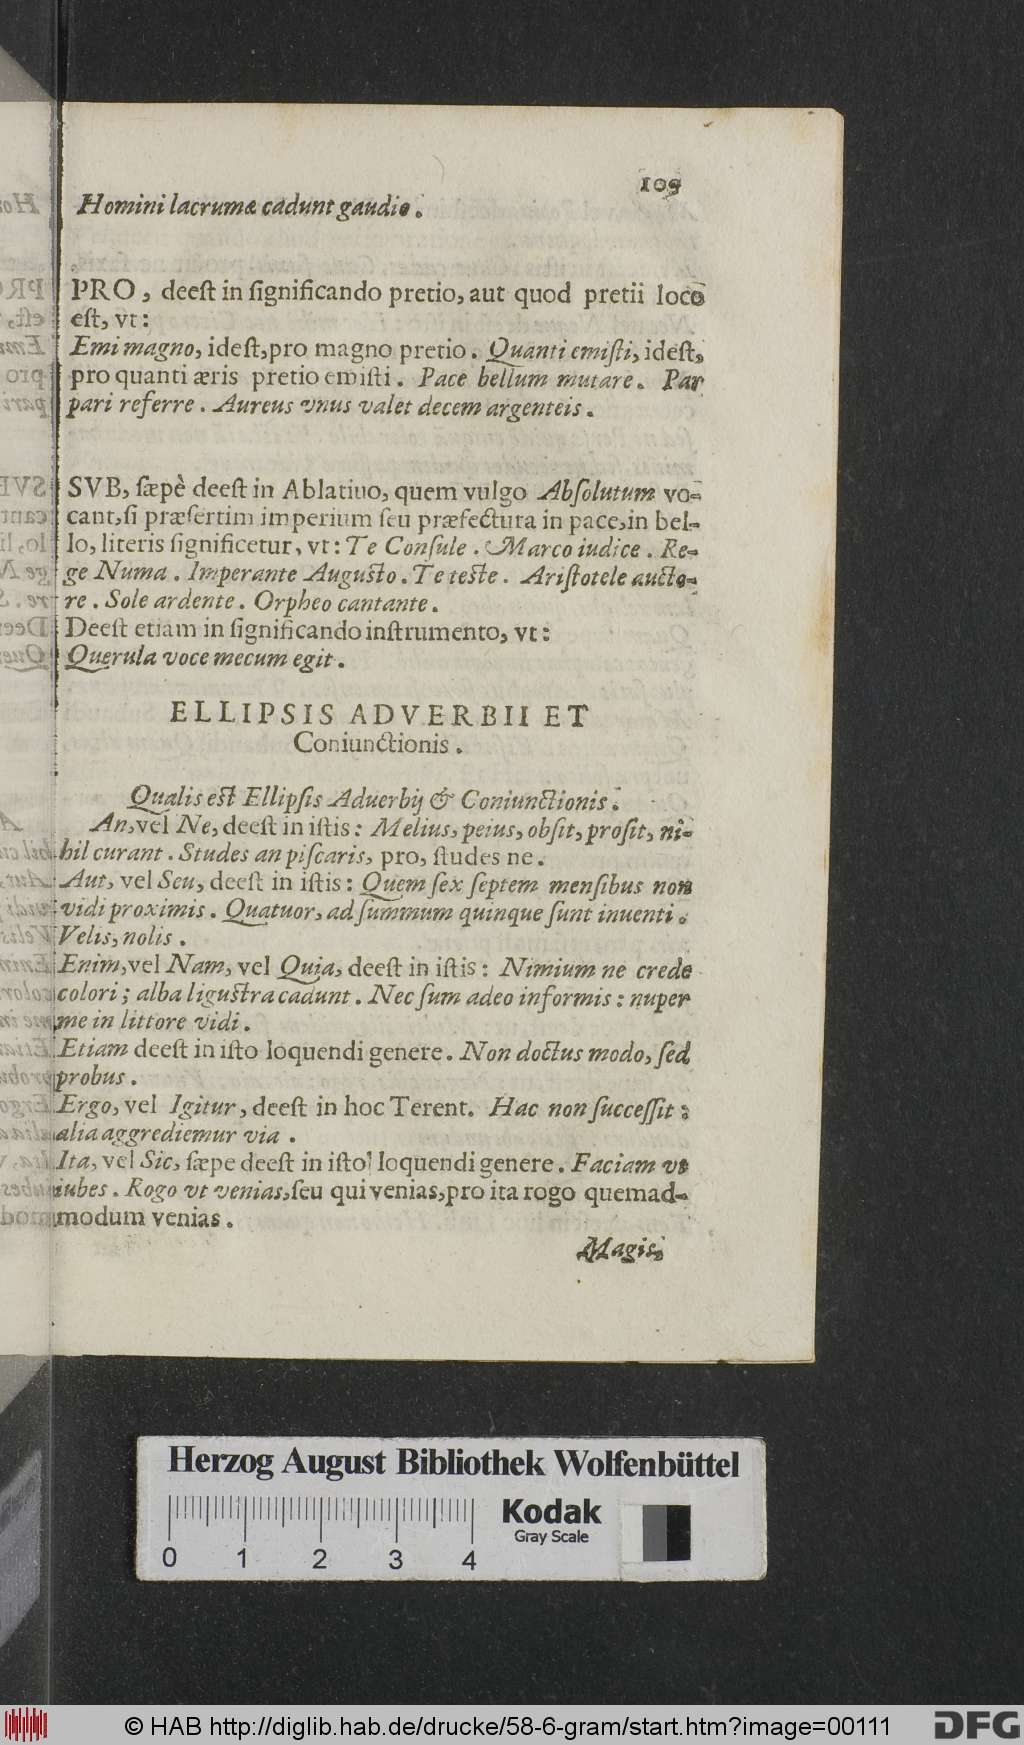 109
Homini lacrumæ cadunt gaudio.
PRO, deeſt in ſignificando pretio, aut quod pretii loco
eſt, vt:
Emi magno, ideſt, pro magno pretio. Quanti emiſti, ideſt,
pro quanti æris pretio emiſti. Pace bellum mutare. Par
pari referre. Aureus vnus valet decem argenteis.
SVB, ſæpè deeſt in Ablatiuo, quem vulgo Abſolutum vo-
cant, ſi præſertim imperium ſeu præfectura in pace, in bel-
lo, literis ſignificetur, vt: Te Conſule. Marco iudice. Re-
ge Numa. Imperante Auguſto. Te teſte. Ariſtotele aucto-
re. Sole ardente. Orpheo cantante.
Deeſt etiam in ſignificando inſtrumento, vt:
Querula voce mecum egit.
ELLIPSIS ADVERBII ET
Coniunctionis.
Qualis eſt Ellipſis Aduerbij & Coniunctionis.
An, vel Ne, deeſt in iſtis: Melius, peius, obſit, proſit, ni-
hil curant. Studes an piſcaris, pro, ſtudes ne.
Aut, vel Seu, deeſt in iſtis: Quem ſex ſeptem menſibus non
vidi proximis. Quatuor, ad ſummum quinque ſunt inuenti.
Velis, nolis.
Enim, vel Nam, vel Quia, deeſt in iſtis: Nimium ne crede
colori; alba liguſtra cadunt. Nec ſum adeo informis: nuper
me in littore vidi.
Etiam deeſt in iſto loquendi genere. Non doctus modo, ſed
probus.
Ergo, vel Igitur, deeſt in hoc Terent. Hac non ſucceſſit:
alia aggrediemur via.
Ita, vel Sic, ſæpe deeſt in iſto loquendi genere. Faciam vt
iubes. Rogo vt venias, ſeu qui venias, pro ita rogo quemad-
modum venias.
Magis,
Herzog August Bibliothek Wolfenbüttel
Kodak
Gray Scale
0 1 2 3 4
© HAB http://diglib.hab.de/drucke/58-6-gram/start.htm?image=00111
DFG